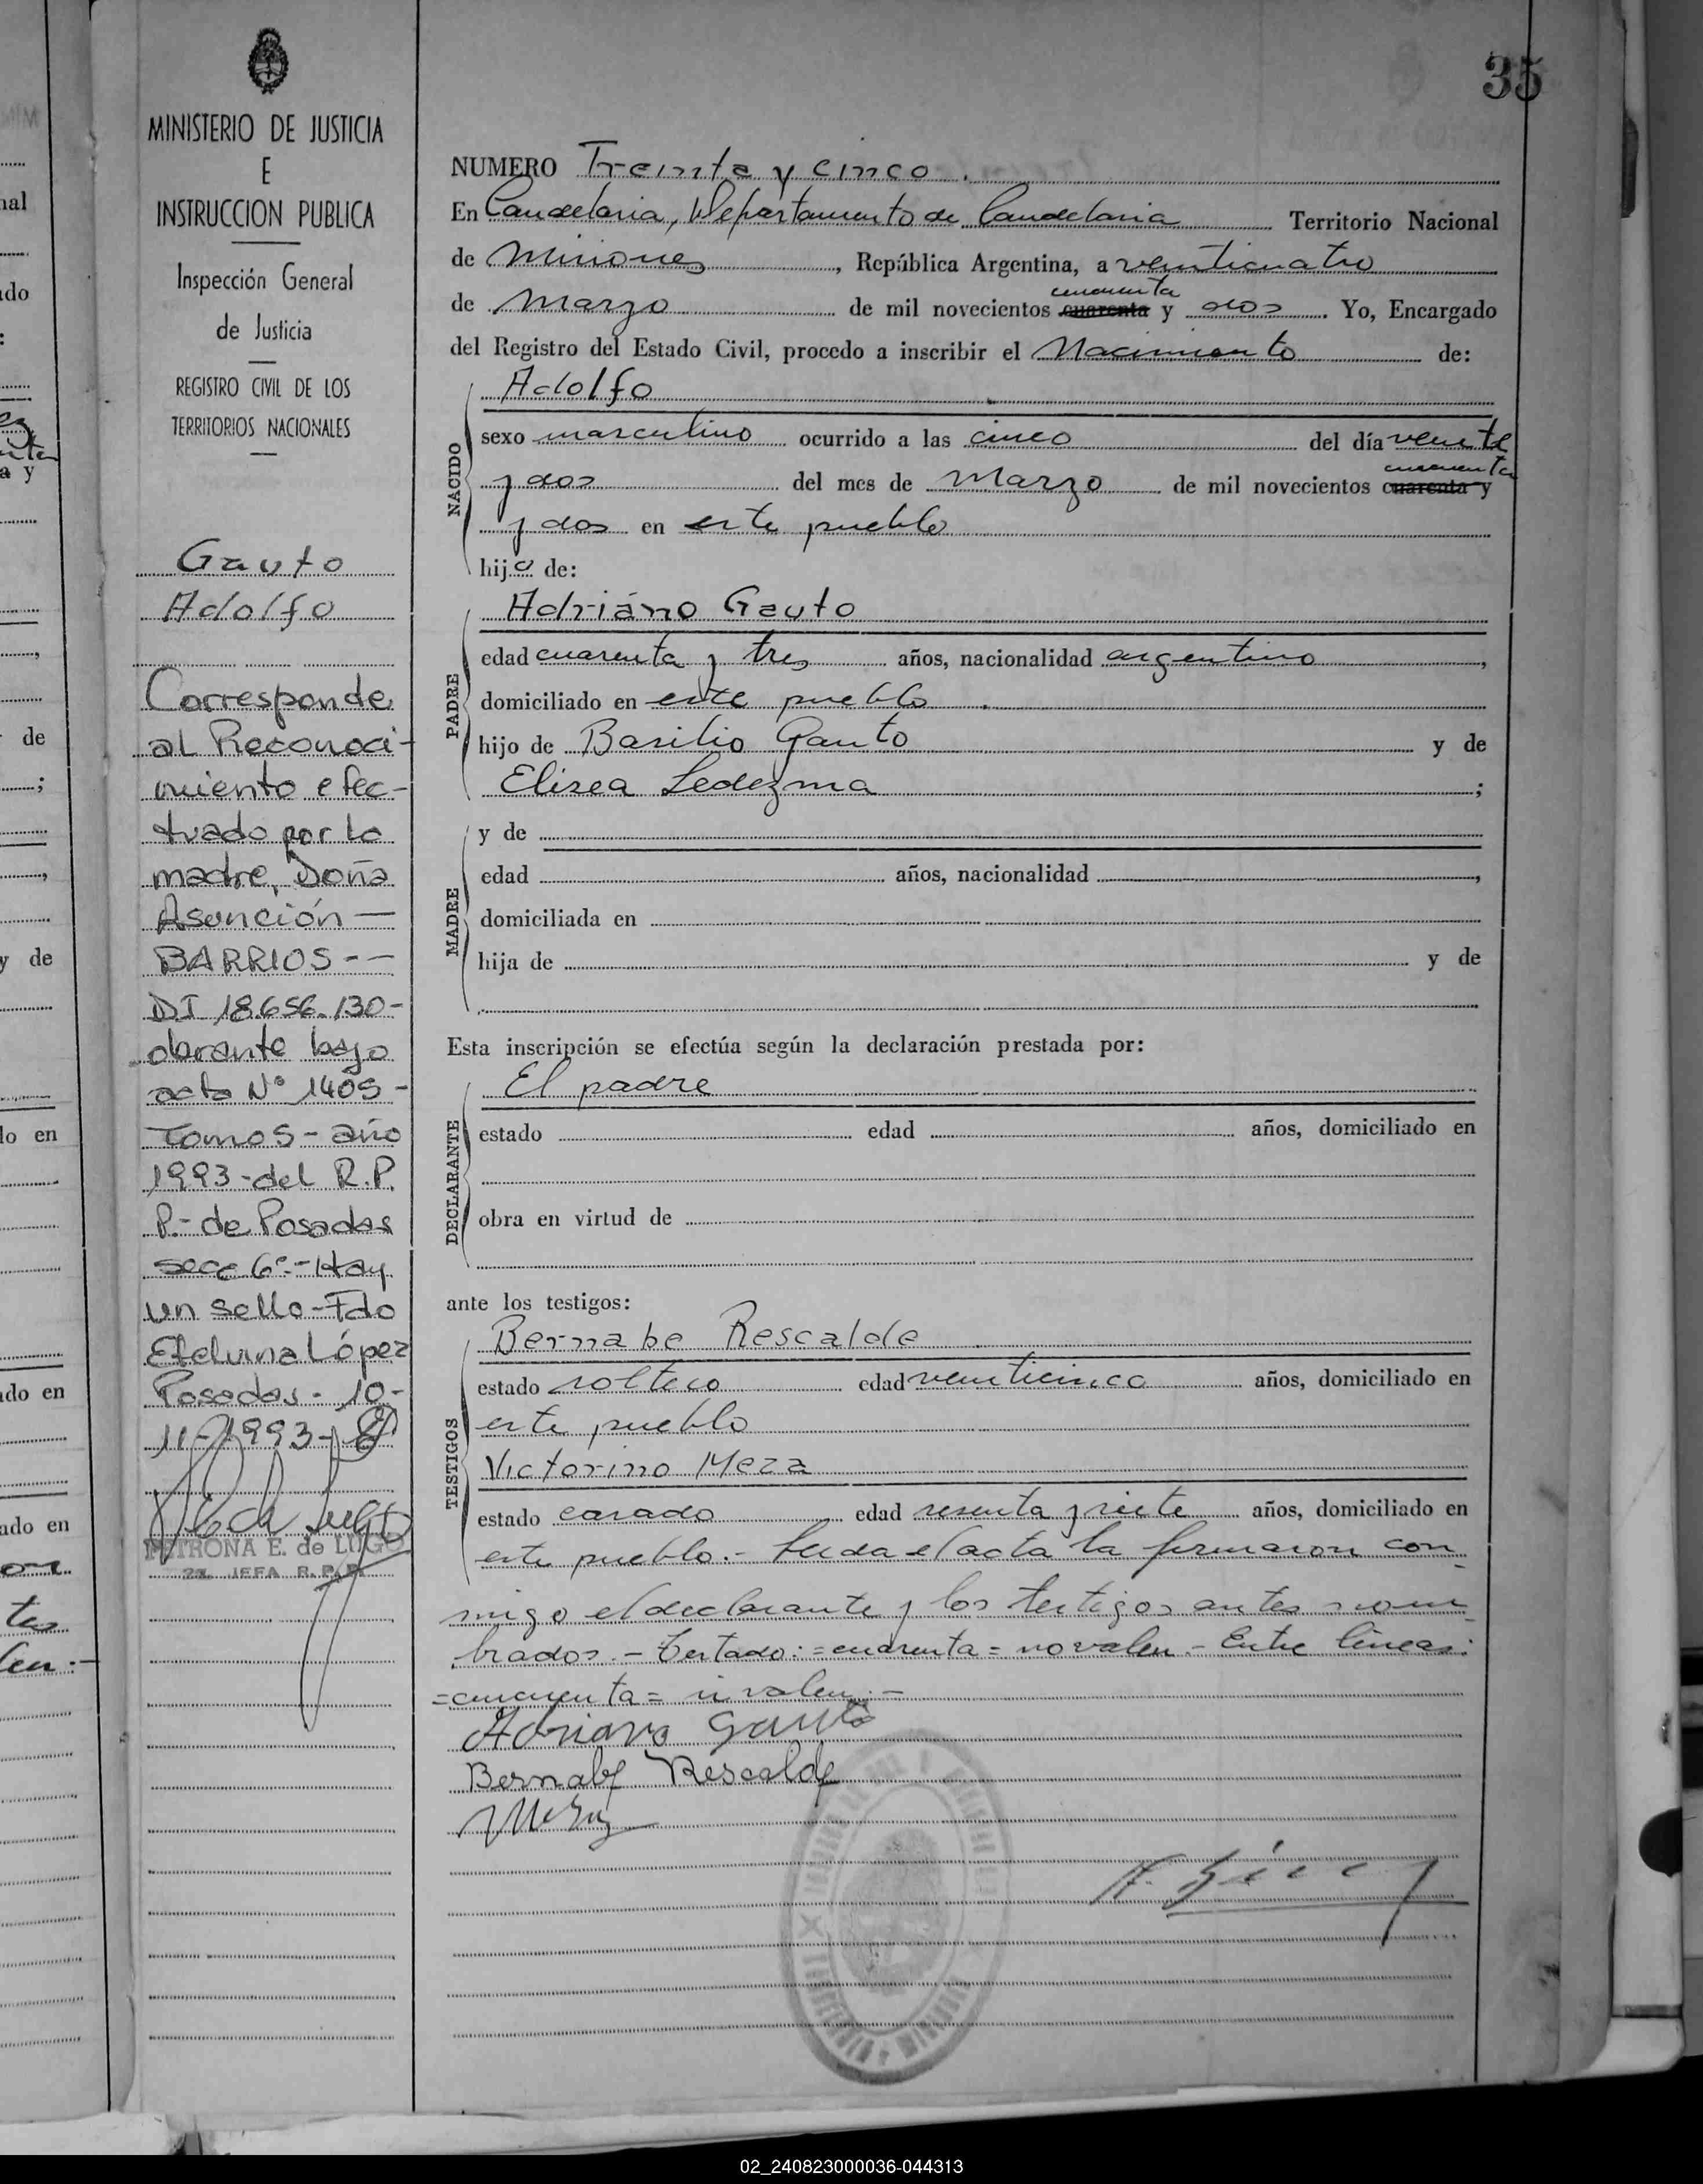 35
MINISTERIO DE JUSTICIA
E
INSTRUCCION PUBLICA
Inspección General
de Justicia
REGISTRO CIVIL DE LOS
TERRITORIOS NACIONALES
Gauto
Adolfo
Corresponde
al Reconoci-
miento efec-
tuado por la
madre, Doña
Asunción —
BARRIOS - -
DI 18.656.130-
obrante bajo
acta Nº 1405 -
Tomo 5 - año
1993 - del R.P.
P.- de Posadas
secc 6ª.- Hay
un sello - Fdo
Etelvina López
Posadas - 10-
11-1993-
PETRONA E. de LUGO
2a. JEFA R. P. P.
NUMERO Treinta y cinco.
En Candelaria, Departamento de Candelaria Territorio Nacional
de Misiones, República Argentina, a veinticuatro
cincuenta
de Marzo de mil novecientos cuarenta y dos. Yo, Encargado
del Registro del Estado Civil, procedo a inscribir el Nacimiento de:
NACIDO
Adolfo
sexo masculino ocurrido a las cinco del día veinte
cincuenta
y dos del mes de Marzo de mil novecientos cuarenta y
y dos en este pueblo
hijo de:
PADRE
Adriano Gauto
edad cuarenta y tres años, nacionalidad argentino,
domiciliado en este pueblo.
hijo de Basilio Gauto y de
Elisea Ledezma;
MADRE
y de
edad años, nacionalidad,
domiciliada en
hija de y de
Esta inscripción se efectúa según la declaración prestada por:
DECLARANTE
El padre
estado edad años, domiciliado en
obra en virtud de
ante los testigos:
TESTIGOS
Bernabe Rescalde
estado soltero edad veinticinco años, domiciliado en
este pueblo
Victorino Meza
estado casado edad sesenta y siete años, domiciliado en
este pueblo.- Leida el acta la firmaron con
migo el declarante y los testigos antes nom
brados.- Testado: =cuarenta= no valen.- Entre líneas:
=cincuenta= si valen.-
Adriano Gauto
Bernabe Rescalde
02_240823000036-044313